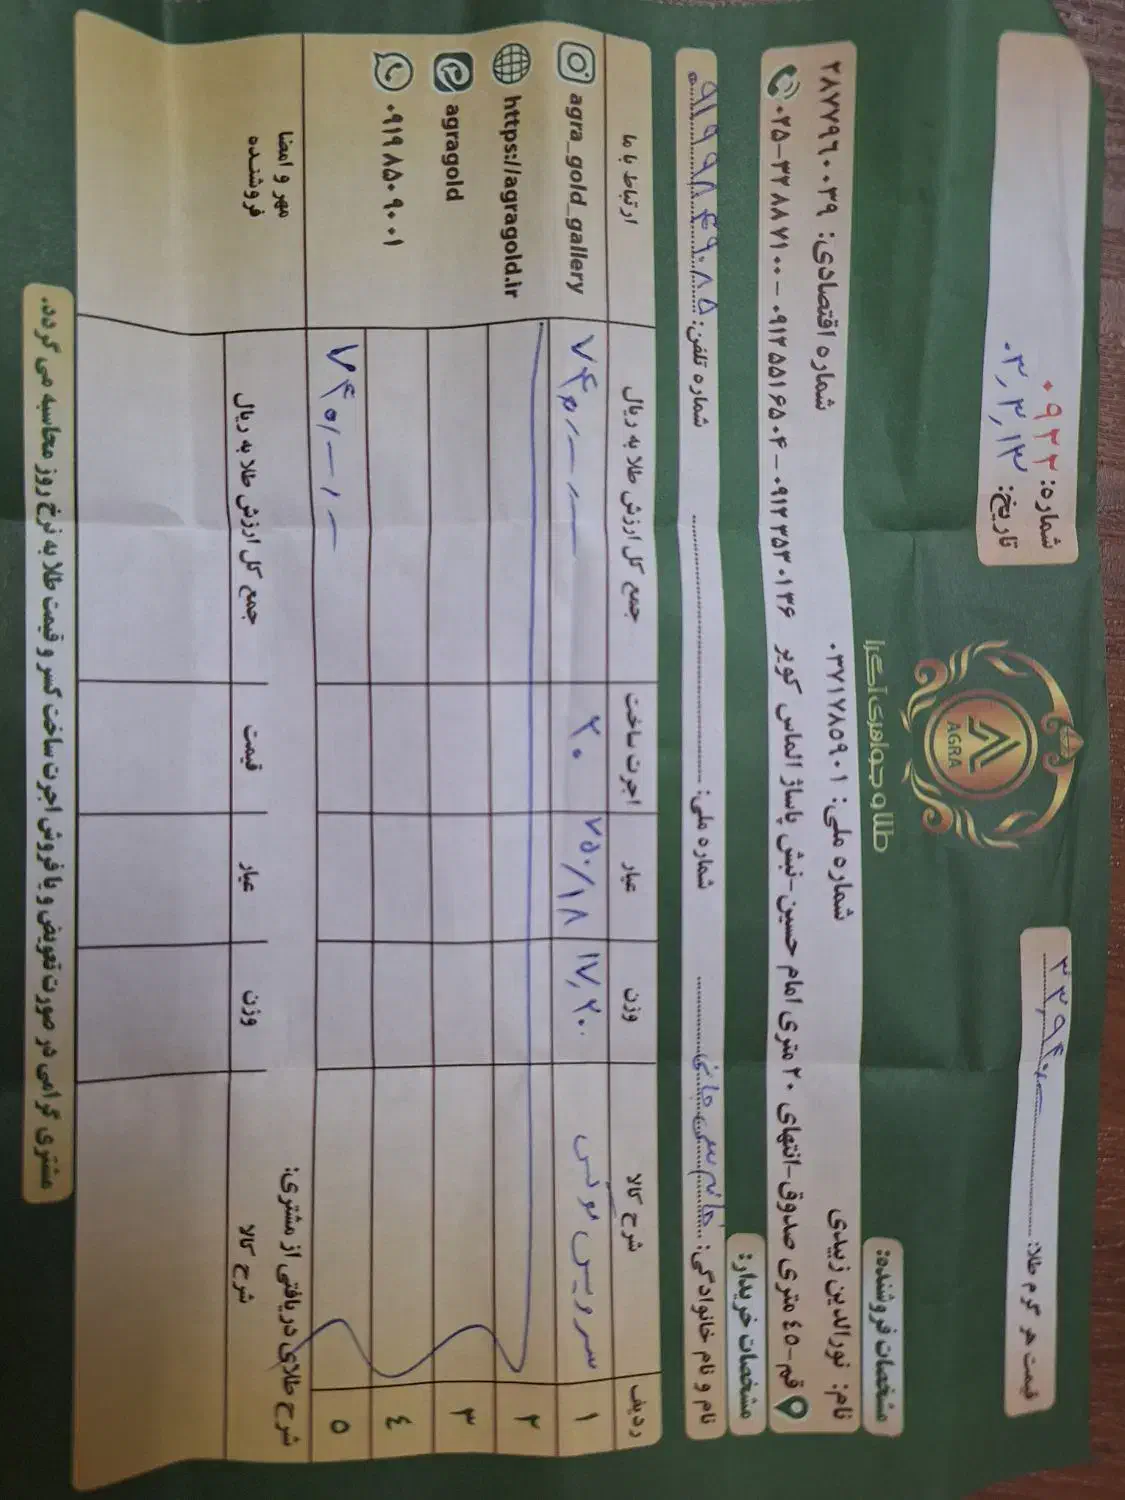 شماره: ۰۹۲۲
تاریخ: ۰۳,۳,۱۳
AGRA
طلا و جواهری آگرا
قیمت هر گرم طلا: ۳۳,۹۴۰
مشخصات فروشنده:
نام: نورالدین زبیدی شماره ملی: ۰۳۷۱۷۸۵۹۰۱ شماره اقتصادی: ۲۸۷۷۹۶۰۰۳۹
قم-٤٥ متری صدوق-انتهای ۲۰ متری امام حسین-نبش پاساژ الماس کویر ۰۹۱۲۳۵۳۰۱۳۶ - ۰۹۱۲۵۵۱۶۵۰۴ - ۰۲۵-۳۲۸۸۷۱۰۰
مشخصات خریدار:
نام و نام خانوادگی: خانم شماره ملی: شماره تلفن: ۰۹۱۹۹۸۴۹۰۸۵
ردیف شرح کالا وزن عیار اجرت ساخت جمع کل ارزش طلا به ریال ارتباط با ما
۱ سرویس ۱۷,۲۰ ۷۵۰/۱۸ ۲۰ agra_gold_gallery
۲ https://agragold.ir
۳ agragold
٤ ۰۹۱۹۸۵۰۹۰۰۱
٥
شرح طلای دریافتی از مشتری: مهر و امضا
فروشنده
شرح کالا وزن عیار قیمت جمع کل ارزش طلا به ریال
مشتری گرامی در صورت تعویض و یا فروش اجرت ساخت کسر و قیمت طلا به نرخ روز محاسبه می گردد.